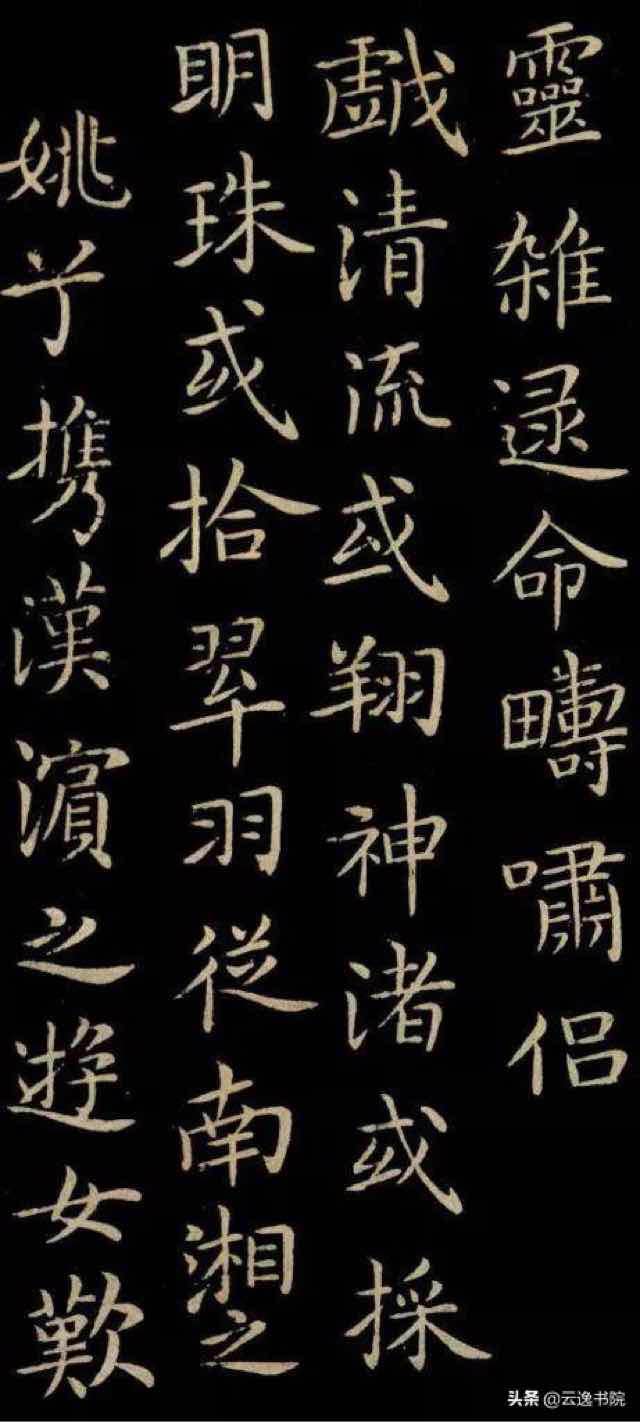 靈雑逯命疇嘯侶
戯清流或翔神渚或採
明珠或拾翠羽從南湘之
姚兮携漢濱之遊女歎
头条@云逸书院